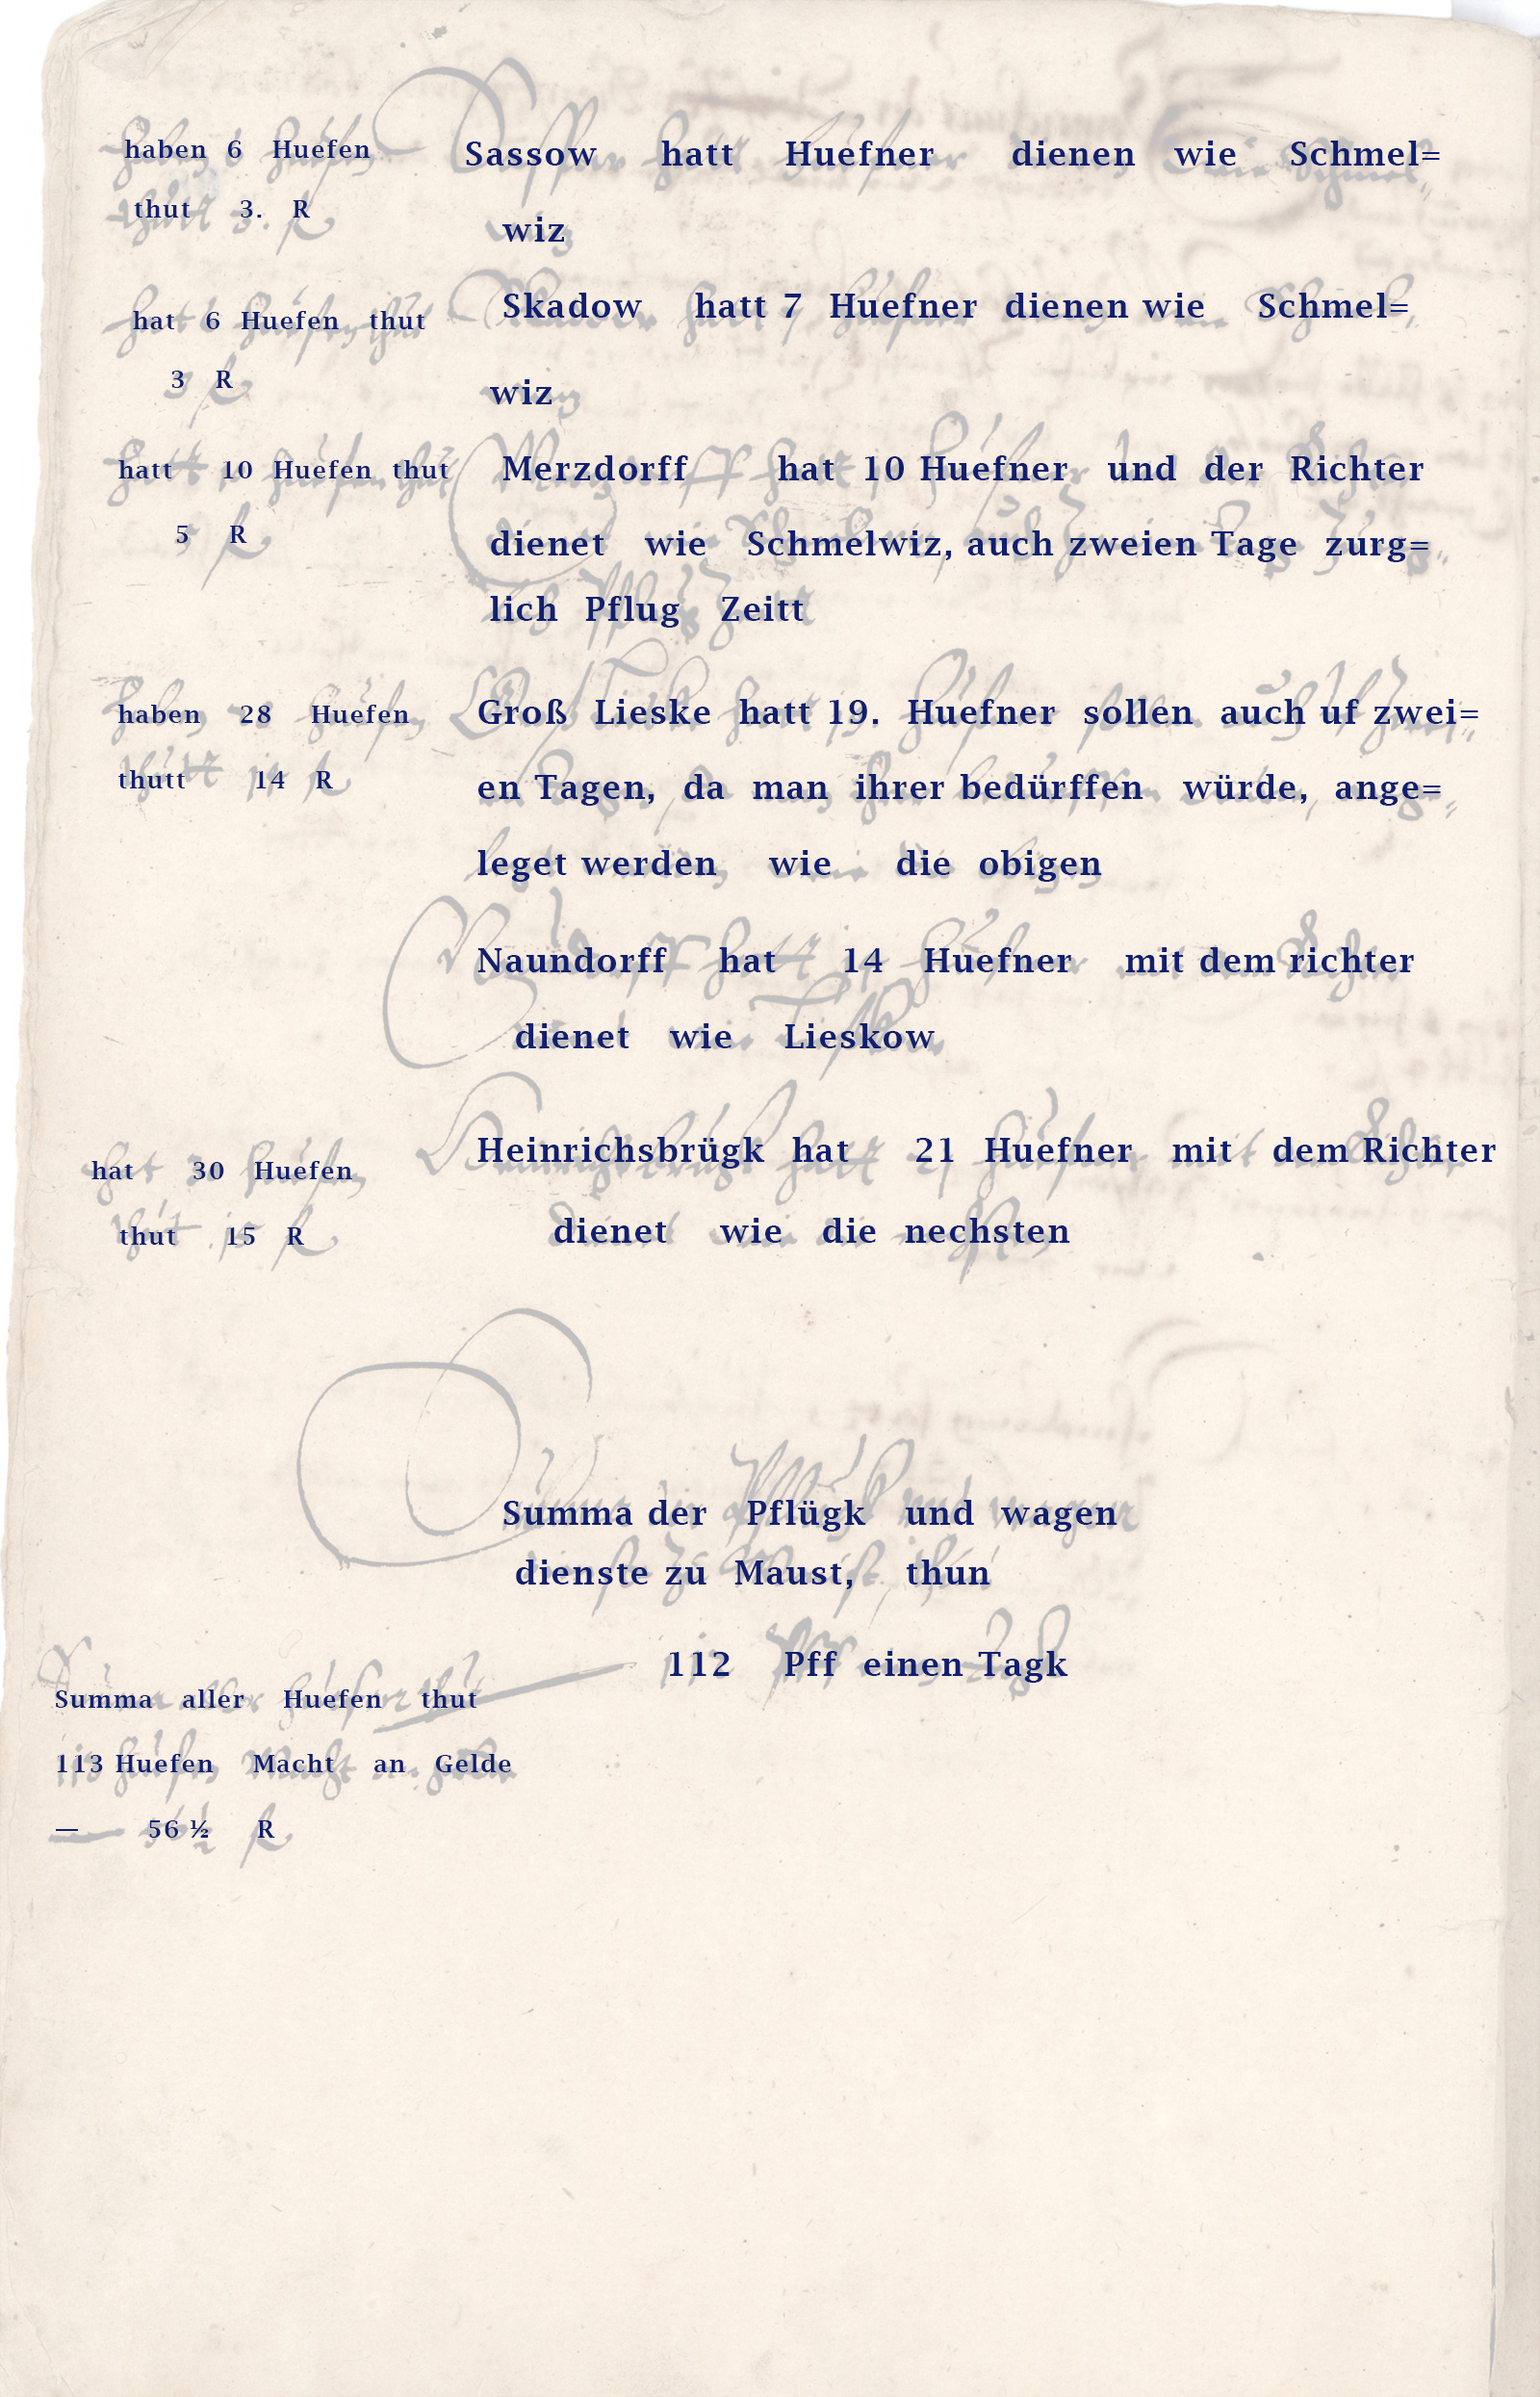 haben 6 Huefen
thut 3. R
Sassow hatt Huefner dienen wie Schmel=
wiz
hat 6 Huefen thut
3 R
Skadow hatt 7 Huefner dienen wie Schmel=
wiz
hatt 10 Huefen thut
5 R
Merzdorff hat 10 Huefner und der Richter
dienet wie Schmelwiz, auch zweien Tage zurg=
lich Pflug Zeitt
haben 28 Huefen
thutt 14 R
Groß Lieske hatt 19. Huefner sollen auch uf zwei=
en Tagen, da man ihrer bedürffen würde, ange=
leget werden wie die obigen
Naundorff hat 14 Huefner mit dem richter
dienet wie Lieskow
hat 30 Huefen
thut 15 R
Heinrichsbrügk hat 21 Huefner mit dem Richter
dienet wie die nechsten
Summa der Pflügk und wagen
dienste zu Maust, thun
112 Pff einen Tagk
Summa aller Huefen thut
113 Huefen Macht an Gelde
— 56 ½ R